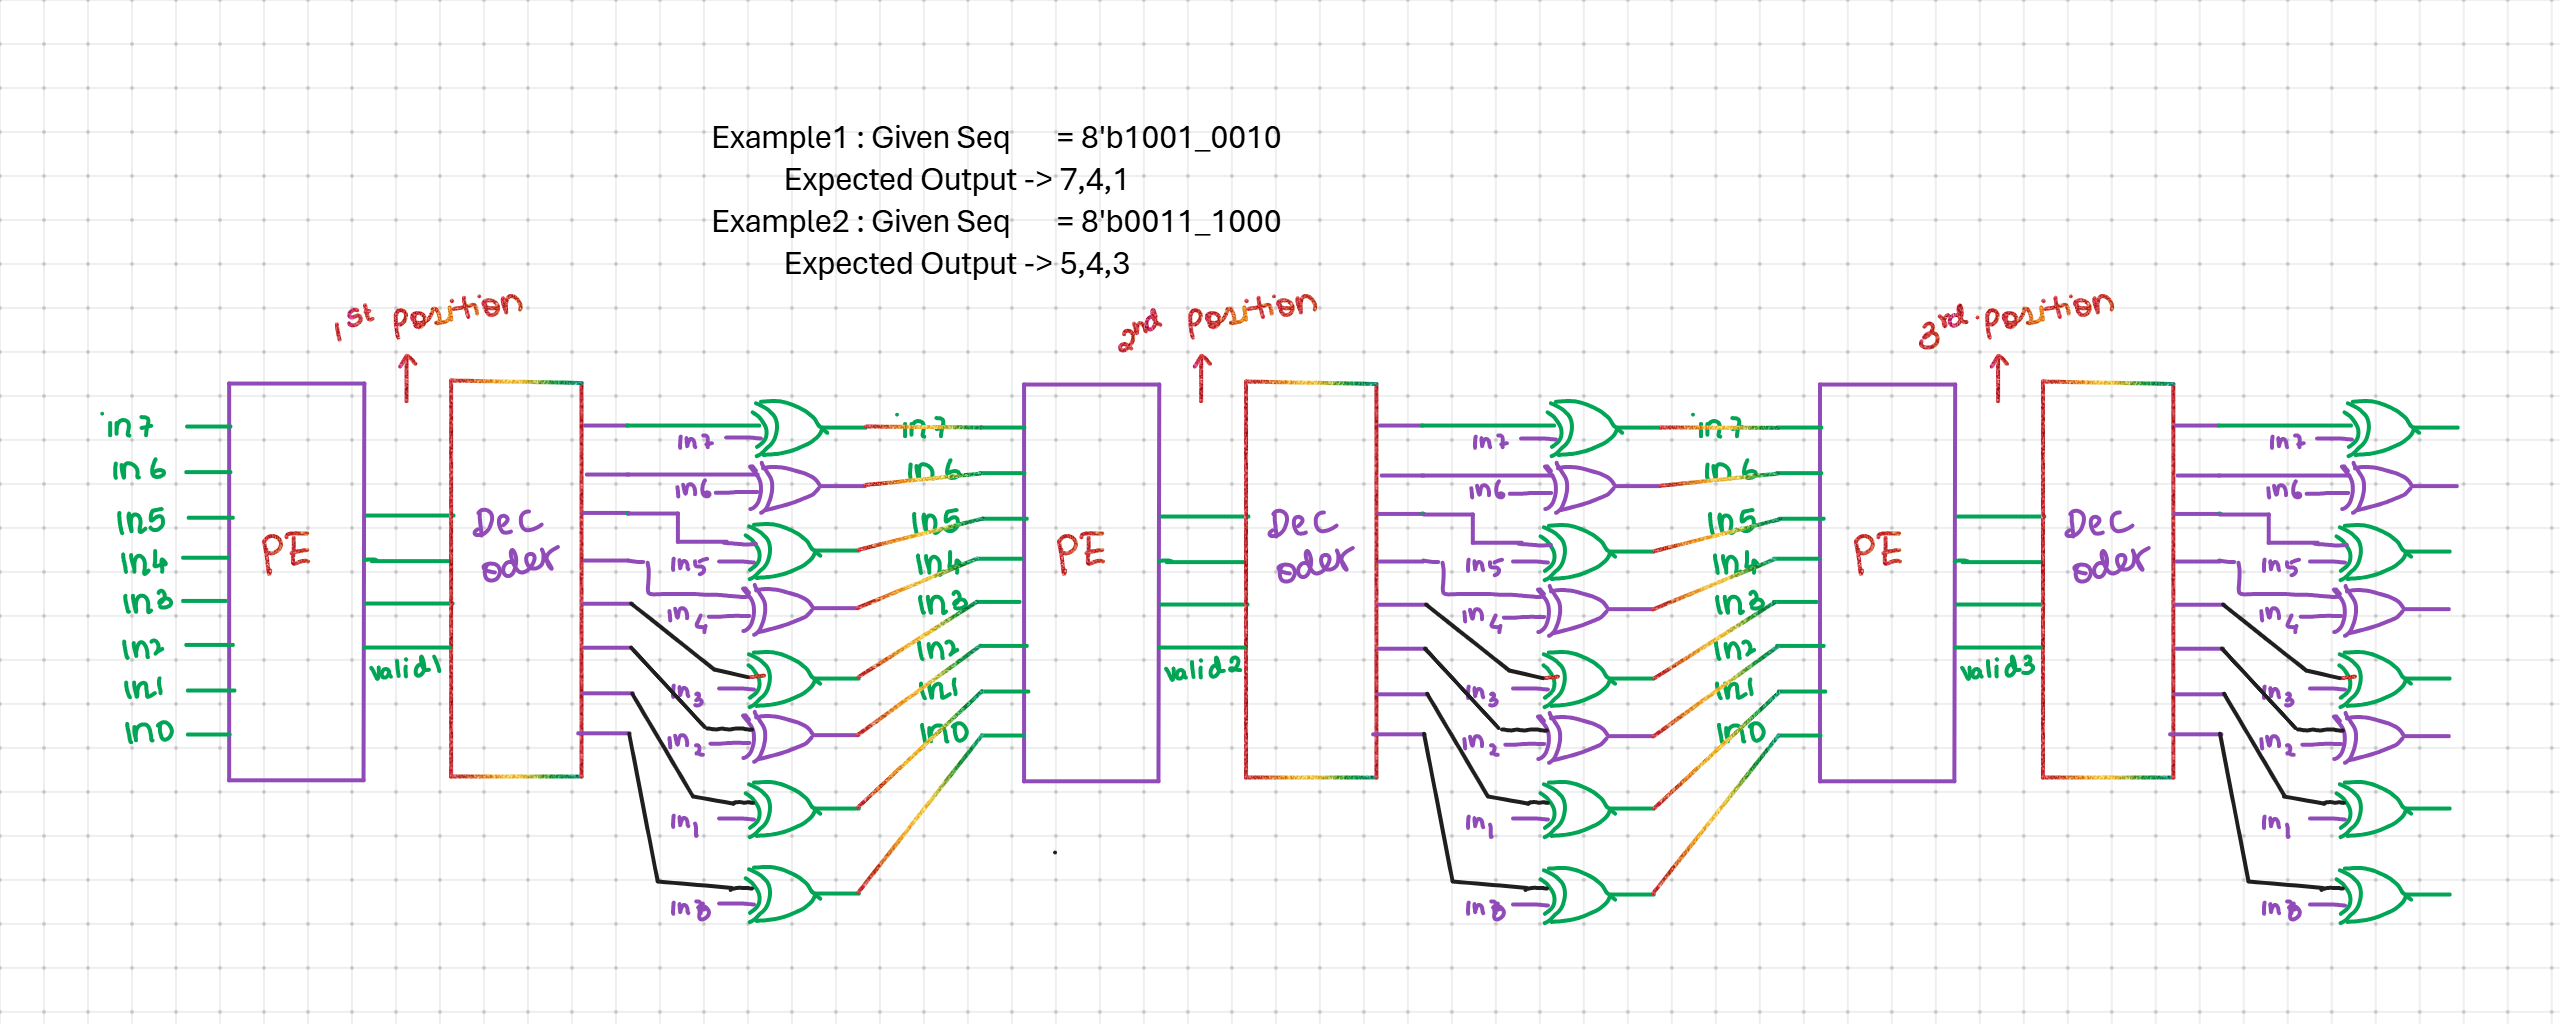 Example1 : Given Seq = 8'b1001_0010
Expected Output -> 7,4,1
Example2 : Given Seq = 8'b0011_1000
Expected Output -> 5,4,3
1st position
2nd position
3rd position
in7
in6
in5
in4
in3
in2
in1
in0
PE
valid1
Dec
oder
in7
in6
in5
in4
in3
in2
in1
in0
in7
in6
in5
in4
in3
in2
in1
in0
PE
valid2
Dec
oder
in7
in6
in5
in4
in3
in2
in1
in0
in7
in6
in5
in4
in3
in2
in1
in0
PE
valid3
Dec
oder
in7
in6
in5
in4
in3
in2
in1
in0